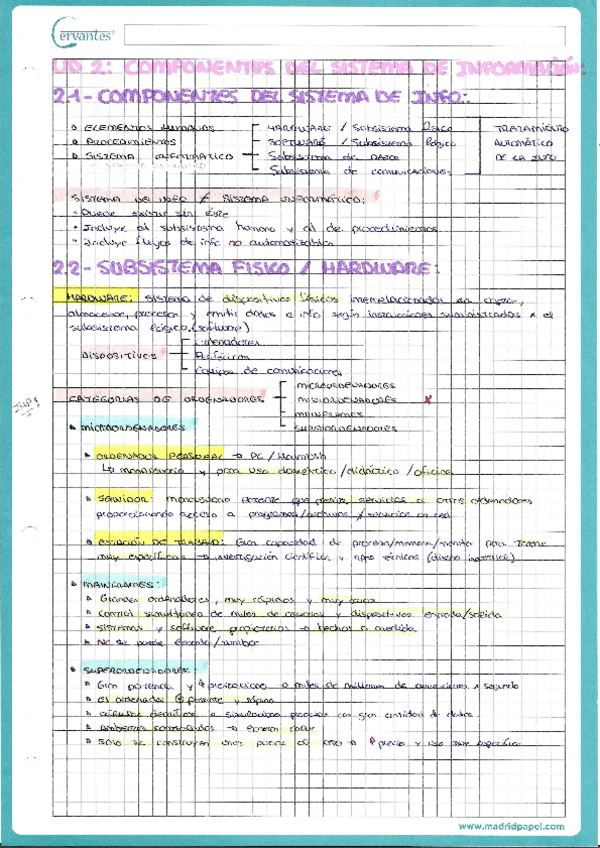 Cervantes
UD 2: COMPONENTES DEL SISTEMA DE INFORMACIÓN:
2.1- COMPONENTES DEL SISTEMA DE INFO:
ELEMENTOS HUMANOS
HARDWARE / Subsistema físico
TRATAMIENTO
PROCEDIMIENTOS
SOFTWARE / Subsistema lógico
AUTOMÁTICO
SISTEMA INFORMÁTICO
Subsistema de DATOS
DE LA INFO
Subsistema de comunicaciones
SISTEMA DE INFO ≠ SISTEMA INFORMÁTICO:
- Puede existir sin éste
- Incluye al subsistema humano y al de procedimientos
- Incluye flujos de info no automatizables
2.2- SUBSISTEMA FISICO / HARDWARE:
HARDWARE: Sistema de dispositivos físicos interrelacionados
almacenar, procesar y emitir datos e info según instrucciones suministradas x el
subsistema lógico (software)
Ordenadores
DISPOSITIVOS
Periféricos
Equipos de comunicaciones
MICROORDENADORES
CATEGORIAS DE ORDENADORES
MINIORDENADORES
MAINFRAMES
SUPERORDENADORES
MICROORDENADORES
ORDENADOR PERSONAL → PC / Macintosh
↳ monousuario y para uso doméstico / didáctico / oficina
SERVIDOR: potente que presta servicios a otros ordenadores
proporcionando acceso a programas / archivos / servicios en red
ESTACIÓN DE TRABAJO: Gran capacidad de proceso/memoria/monitor para
muy específicas → investigación científica y apps técnicas (diseño industrial)
MAINFRAMES:
Grandes ordenadores, muy rápidos y muy caros
Control simultáneo de miles de usuarios y dispositivos entrada/salida
Sistemas y software propietarios → hechos a medida
No se puede
SUPERORDENADORES:
Gran potencia y miles de millones de operaciones x segundo
El ordenador + potente y rápido
Cálculos científicos o simulaciones procesos con gran cantidad de datos
Ambientes
Solo se construyen unos pocos al año → precio y uso muy específico
www.madridpapel.com